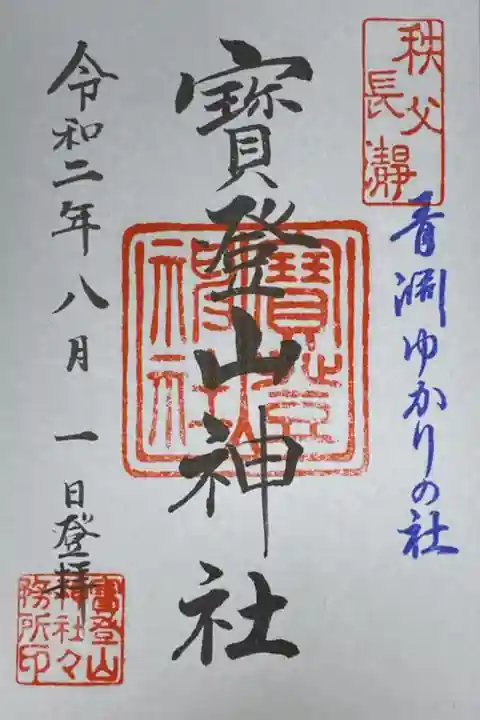 秩父
長瀞
青淵ゆかりの社
寳登山神社
寳登山
神社
令和二年八月一日登拝
寳登山
神社々
務所印